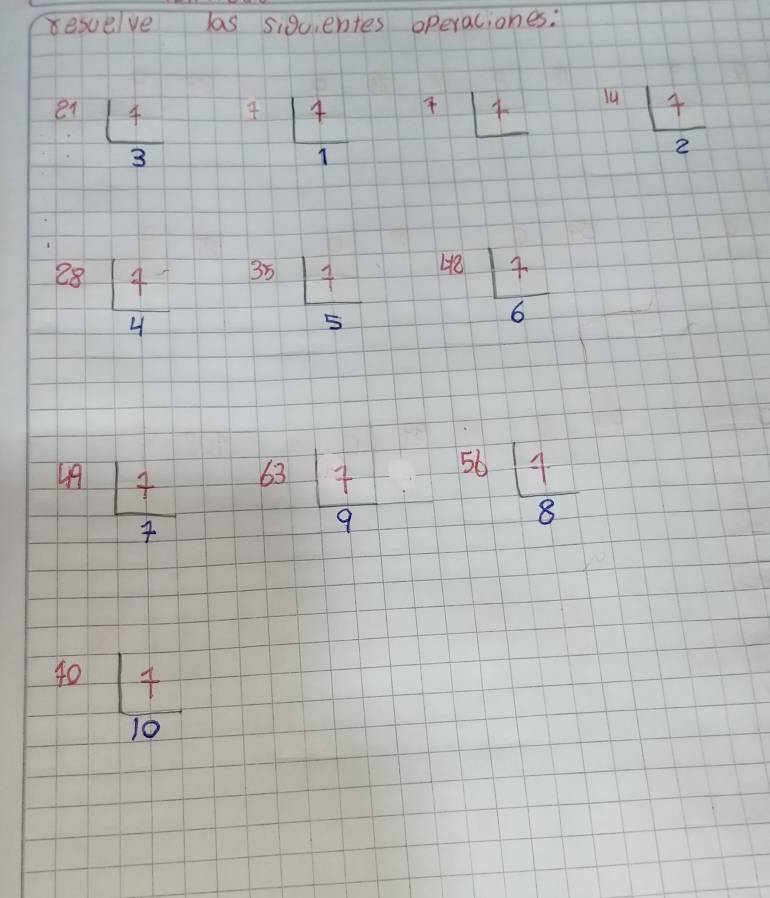 resuelve las siguientes operaciones:
21 7 7 7 7 7 14 7
3 1 2
28 7 35 7 42 7
4 5 6
49 7 63 7 56 7
7 9 8
70 7
10